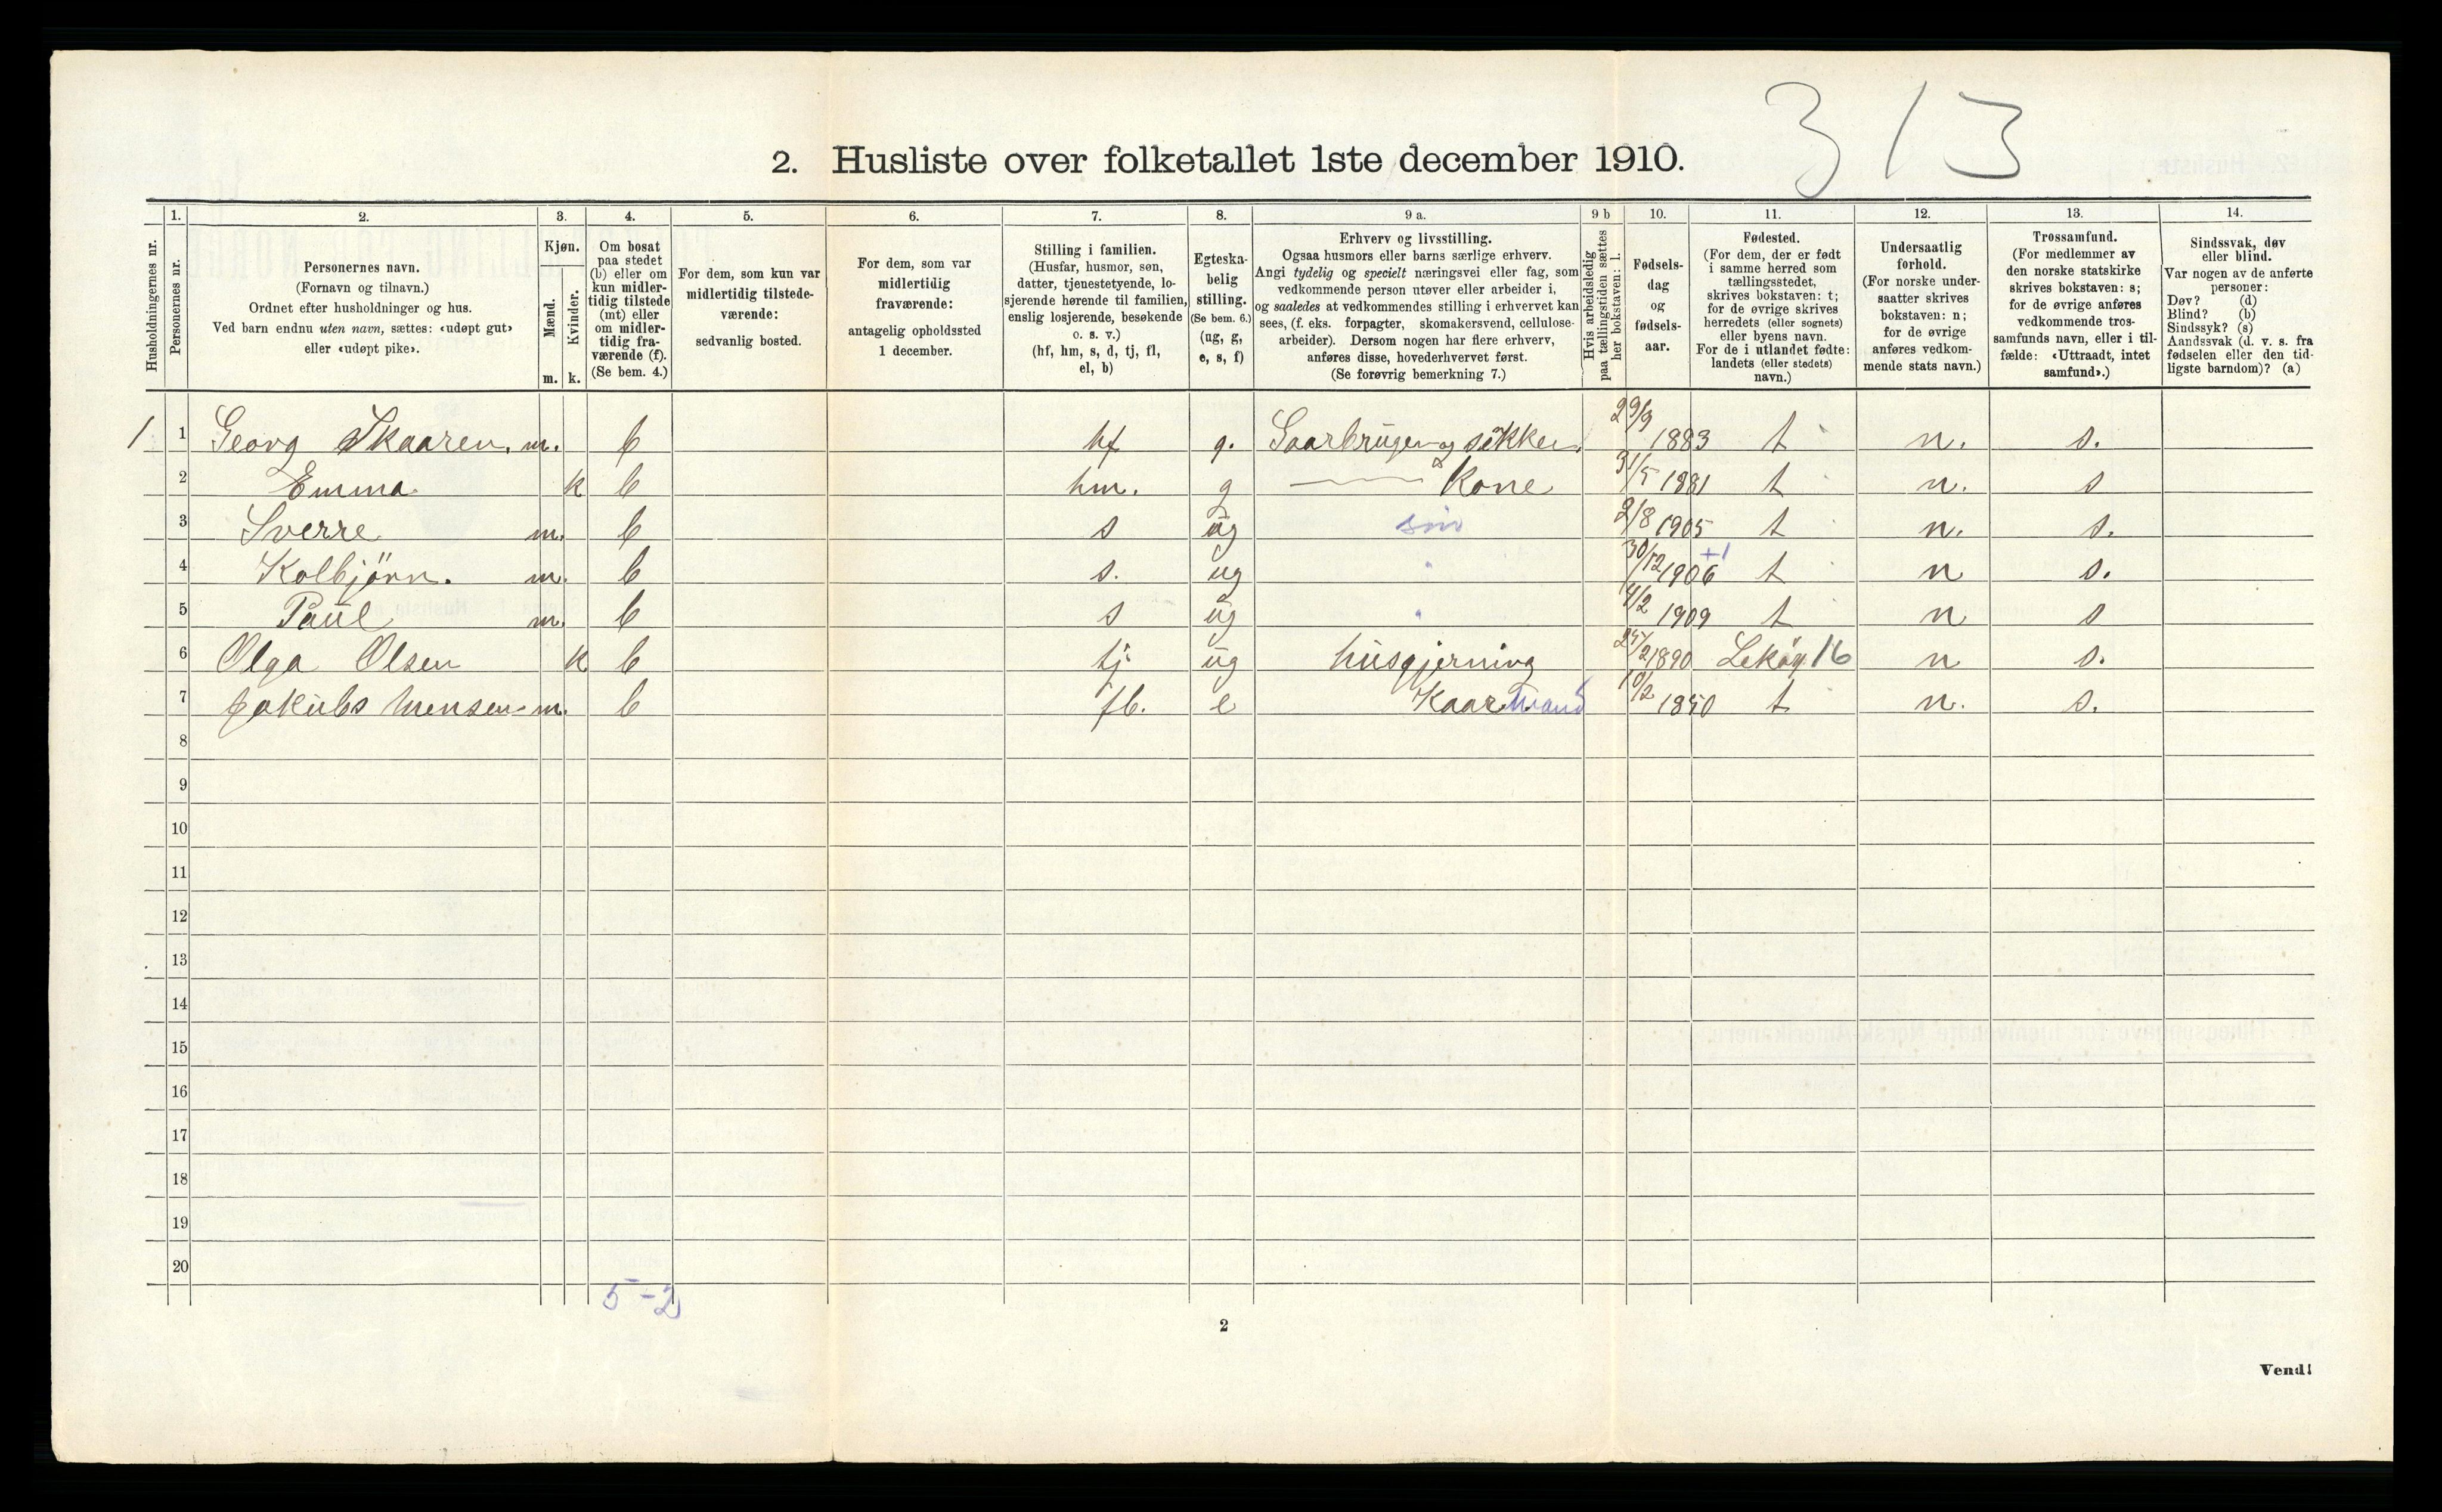 313
2. Husliste over folketallet 1ste december 1910.
1. 2. 3. 4. 5. 6. 7. 8. 9 a. 9 b 10. 11. 12. 13. 14.
Husholdningernes nr.
Personernes nr.
Personernes navn.
(Fornavn og tilnavn.)
Ordnet efter husholdninger og hus.
Ved barn endnu uten navn, sættes: «udøpt gut»
eller «udøpt pike».
Kjøn.
Mænd.
Kvinder.
m. k.
Om bosat
paa stedet
(b) eller om
kun midler-
tidig tilstede
(mt) eller
om midler-
tidig fra-
værende (f).
(Se bem. 4.)
For dem, som kun var
midlertidig tilstede-
værende:
sedvanlig bosted.
For dem, som var
midlertidig
fraværende:
antagelig opholdssted
1 december.
Stilling i familien.
(Husfar, husmor, søn,
datter, tjenestetyende, lo-
sjerende hørende til familien,
enslig losjerende, besøkende
o. s. v.)
(hf, hm, s, d, tj, fl,
el, b)
Egteska-
belig
stilling.
(Se bem. 6.)
(ug, g,
e, s, f)
Erhverv og livsstilling.
Ogsaa husmors eller barns særlige erhverv.
Angi tydelig og specielt næringsvei eller fag, som
vedkommende person utøver eller arbeider i,
og saaledes at vedkommendes stilling i erhvervet kan
sees, (f. eks. forpagter, skomakersvend, cellulose-
arbeider). Dersom nogen har flere erhverv,
anføres disse, hovederhvervet først.
(Se forøvrig bemerkning 7.)
Hvis arbeidsledig
paa tællingstiden sættes
her bokstaven: l.
Fødsels-
dag
og
fødsels-
aar.
Fødested.
(For dem, der er født
i samme herred som
tællingsstedet,
skrives bokstaven: t;
for de øvrige skrives
herredets (eller sognets)
eller byens navn.
For de i utlandet fødte:
landets (eller stedets)
navn.)
Undersaatlig
forhold.
(For norske under-
saatter skrives
bokstaven: n;
for de øvrige
anføres vedkom-
mende stats navn.)
Trossamfund.
(For medlemmer av
den norske statskirke
skrives bokstaven: s;
for de øvrige anføres
vedkommende tros-
samfunds navn, eller i til-
fælde: «Uttraadt, intet
samfund».)
Sindssvak, døv
eller blind.
Var nogen av de anførte
personer:
Døv? (d)
Blind? (b)
Sindssyk? (s)
Aandssvak (d. v. s. fra
fødselen eller den tid-
ligste barndom)? (a)
1 1 Georg Skaaren. m. b hf g. Gaarbruger og 29/9 1883 t n. s.
2 Emma k b hm. g Kone 31/5 1881 t n. s
3 Sverre m. b s ug søn 2/8 1905 t n. s.
4 Kolbjörn. m. b s. ug " 30/12 1906 +1 t n s.
5 Paul m. b s ug " 4/2 1909 t n s
6 Olga Olsen k b tj ug husgjerning 1890 Lekøy 16 n s.
7 m. b fb. e Kaarmand 10/2 1850 t n. s.
8
9
10
11
12
13
14
15
16
17
18
19
20
5-2
2
Vend!